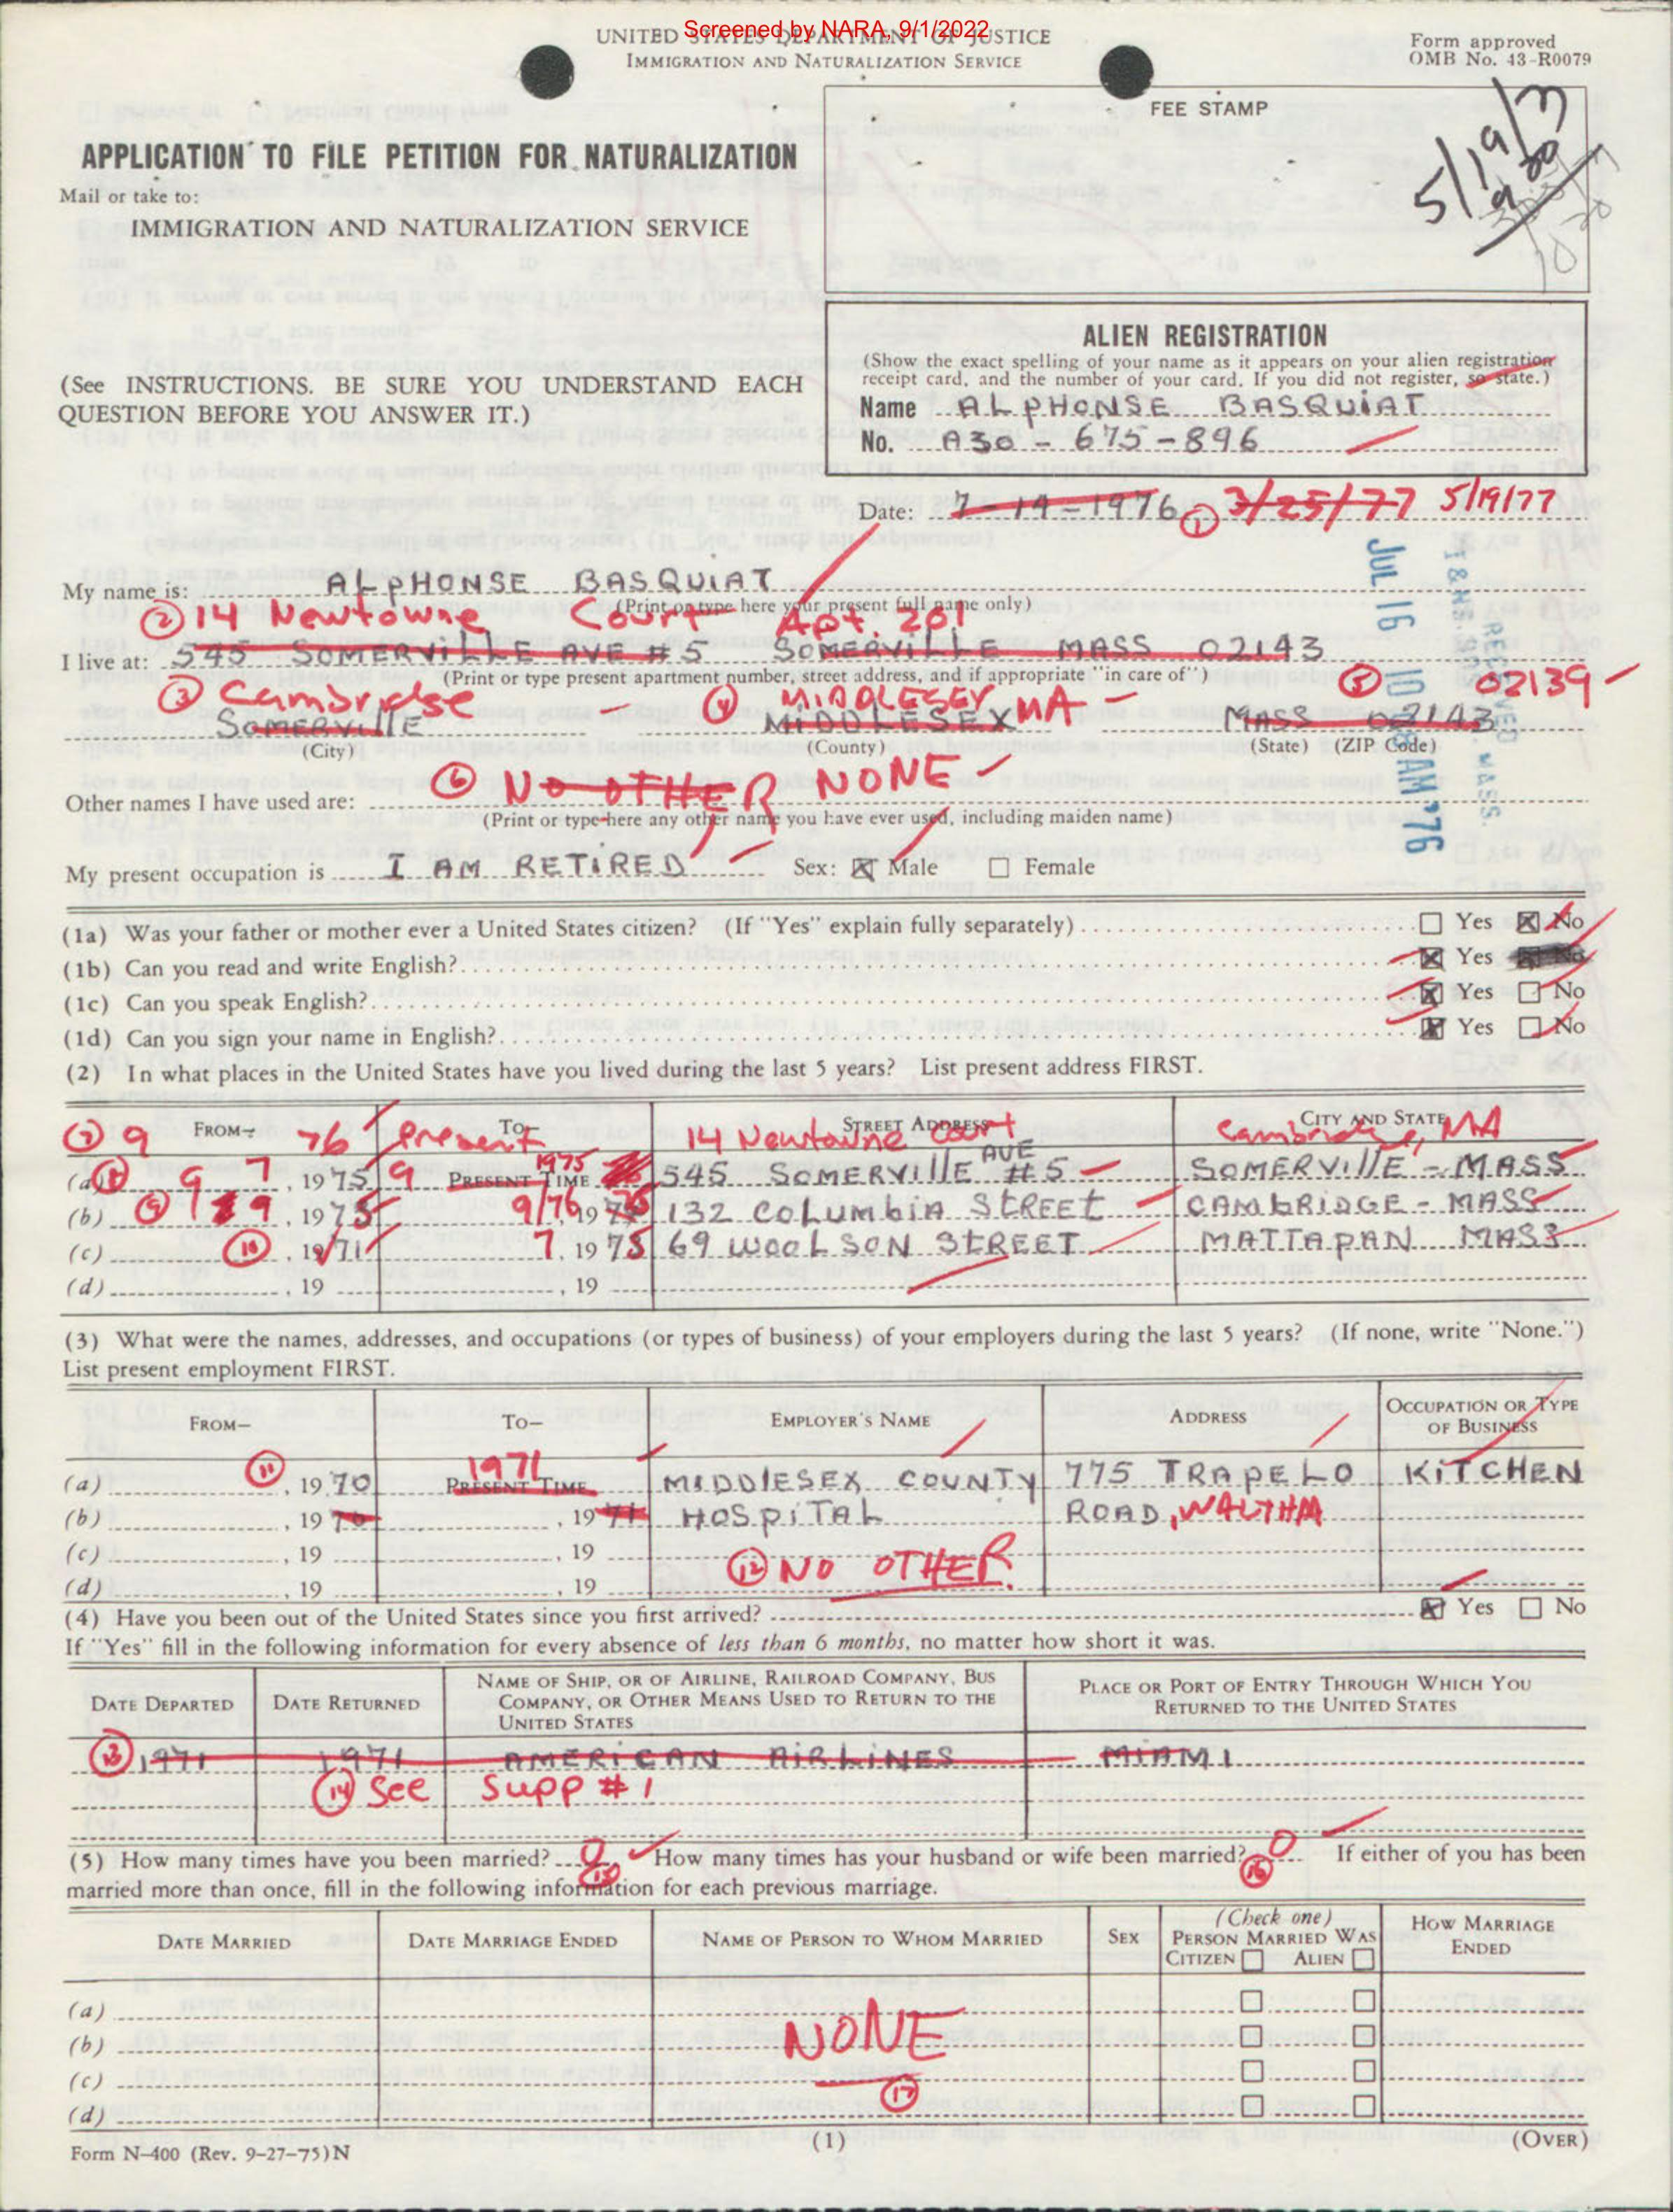 Screened by NARA, 9/1/2022
UNITED STATES DEPARTMENT OF JUSTICE
IMMIGRATION AND NATURALIZATION SERVICE
Form approved
OMB No. 43-R0079
FEE STAMP
5/19/77
APPLICATION TO FILE PETITION FOR NATURALIZATION
Mail or take to:
IMMIGRATION AND NATURALIZATION SERVICE
(See INSTRUCTIONS. BE SURE YOU UNDERSTAND EACH
QUESTION BEFORE YOU ANSWER IT.)
ALIEN REGISTRATION
(Show the exact spelling of your name as it appears on your alien registration
receipt card, and the number of your card. If you did not register, so state.)
Name ALPHONSE BASQUIAT
No. A30-675-896
Date: 7-14-1976 (1) 3/25/77 5/19/77
RECEIVED
JUL 16 10 28 AM '76
My name is: ALPHONSE BASQUIAT
(Print or type here your present full name only)
(2) 14 Newtowne Court Apt. 201
I live at: 545 SOMERVILLE AVE #5 SOMERVILLE MASS 02143
(Print or type present apartment number, street address, and if appropriate "in care of")
(3) Cambridge (4) MIDDLESEX MA (5) 02139
SOMERVILLE MIDDLESEX MASS 02143
(City) (County) (State) (ZIP Code)
(6) NO OTHER NONE
Other names I have used are:
(Print or type here any other name you have ever used, including maiden name)
My present occupation is I AM RETIRED Sex: ☒ Male ☐ Female
(1a) Was your father or mother ever a United States citizen? (If "Yes" explain fully separately) ☐ Yes ☒ No
(1b) Can you read and write English? ☒ Yes No
(1c) Can you speak English? ☒ Yes ☐ No
(1d) Can you sign your name in English? ☒ Yes ☐ No
(2) In what places in the United States have you lived during the last 5 years? List present address FIRST.
FROM— TO— STREET ADDRESS CITY AND STATE
(7) 9 76 present 14 Newtowne Court Cambridge, MA
(a) (8) 9 7, 1975 9 PRESENT TIME 1975 76 545 SOMERVILLE AVE #5 SOMERVILLE - MASS
(b) (9) 9, 1975 9/76, 19 132 COLUMBIA STREET CAMBRIDGE - MASS
(c) (10), 1971 7, 1975 69 WOOLSON STREET MATTAPAN MASS
(d) , 19 , 19
(3) What were the names, addresses, and occupations (or types of business) of your employers during the last 5 years? (If none, write "None.")
List present employment FIRST.
FROM— TO— EMPLOYER'S NAME ADDRESS OCCUPATION OR TYPE OF BUSINESS
(a) (11), 1970 PRESENT TIME 1971 MIDDLESEX COUNTY 775 TRAPELO KITCHEN
(b) , 1970 , 1971 HOSPITAL ROAD, WALTHAM
(c) , 19 , 19
(12) NO OTHER
(d) , 19 , 19
(4) Have you been out of the United States since you first arrived? ☒ Yes ☐ No
If "Yes" fill in the following information for every absence of less than 6 months, no matter how short it was.
DATE DEPARTED DATE RETURNED NAME OF SHIP, OR OF AIRLINE, RAILROAD COMPANY, BUS COMPANY, OR OTHER MEANS USED TO RETURN TO THE UNITED STATES PLACE OR PORT OF ENTRY THROUGH WHICH YOU RETURNED TO THE UNITED STATES
(13) 1971 1971 AMERICAN AIRLINES MIAMI
(14) See Supp #1
(5) How many times have you been married? 0 (15) How many times has your husband or wife been married? 0 (16) If either of you has been
married more than once, fill in the following information for each previous marriage.
DATE MARRIED DATE MARRIAGE ENDED NAME OF PERSON TO WHOM MARRIED SEX (Check one) PERSON MARRIED WAS CITIZEN ☐ ALIEN ☐ HOW MARRIAGE ENDED
(a) ☐ ☐
(b) NONE ☐ ☐
(c) ☐ ☐
(17)
(d) ☐ ☐
Form N-400 (Rev. 9-27-75)N
(1)
(OVER)